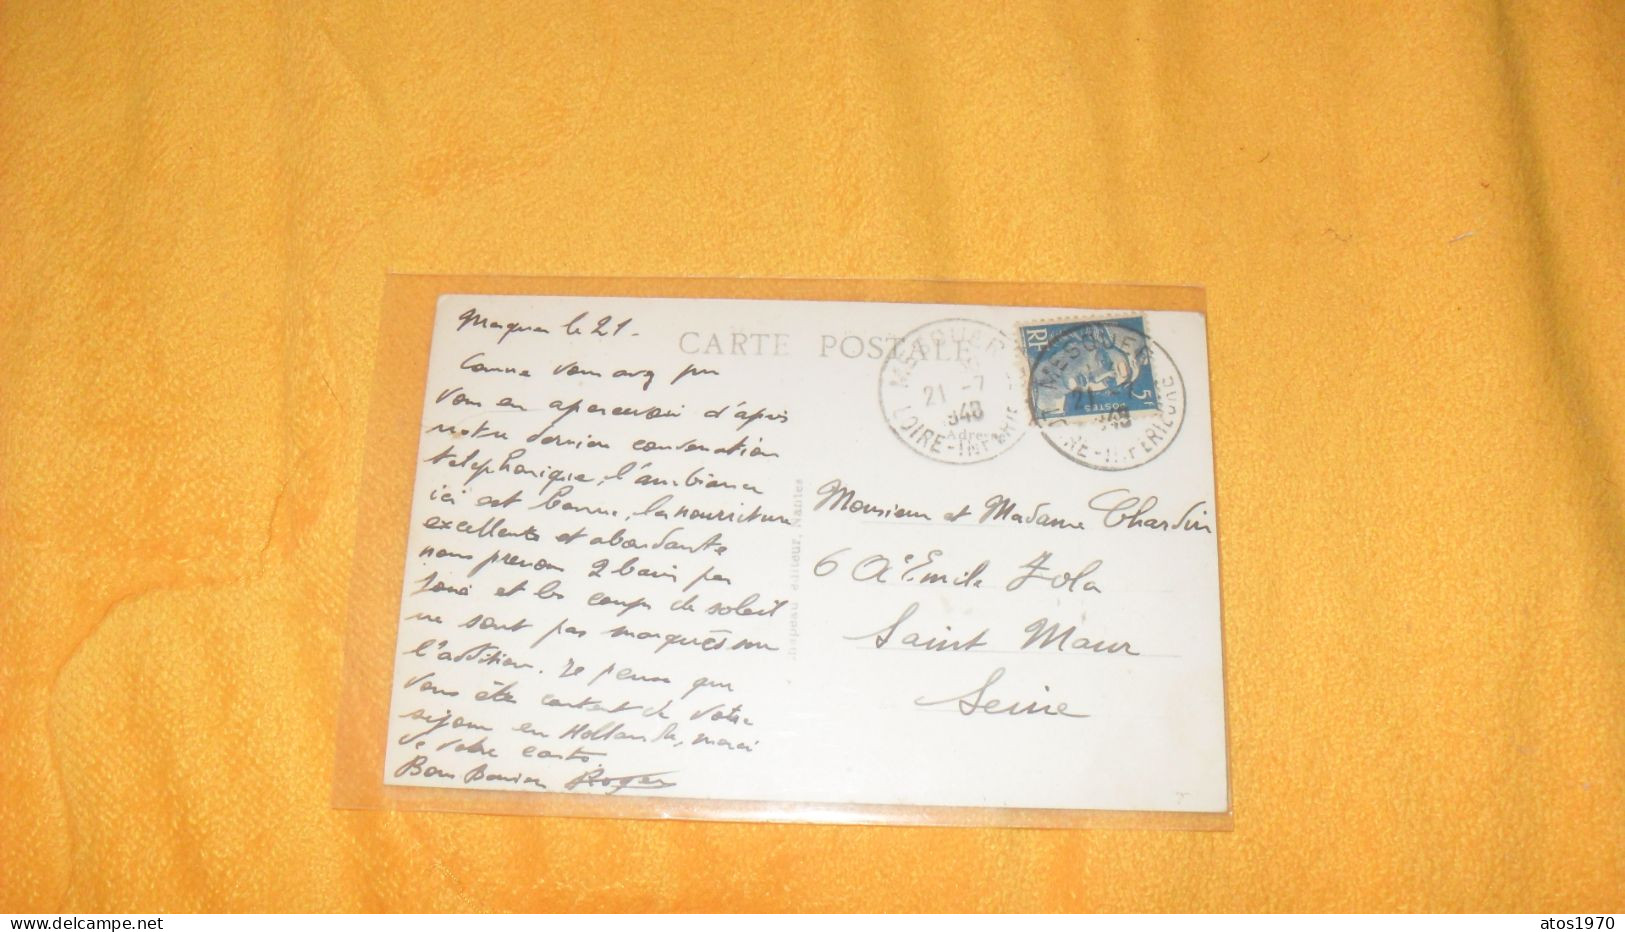 Mesquer le 21-
CARTE POSTALE
MESQUER
21 -7
1948
LOIRE-INFRE
RF
POSTES
5F
MESQUER
21 -7
1948
LOIRE-INFERIEURE
Adre
Comme vous avez pu
vous en apercevoir d'après
notre dernière conversation
telephonique, l'ambiance
ici est bonne, la nourriture
excellente et abondante
nous prenons 2 bains par
jour et les coups de soleil
ne sont pas marqués sur
l'addition. Je pense que
vous ête content de votre
séjour en Hollande, merci
de votre carte.
Bons Baisers Roger
Chapeau éditeur, Nantes
Monsieur et Madame Chardin
6 Emile Zola
Saint Maur
Seine
atos1970